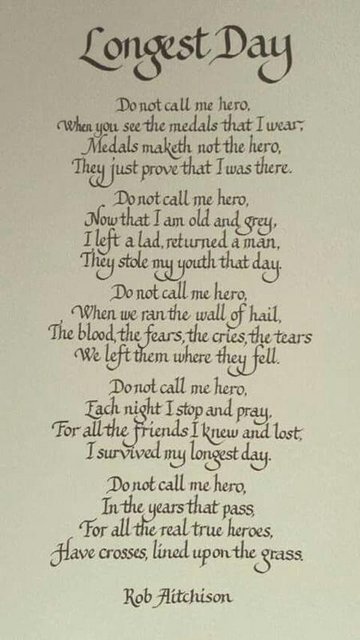 Longest Day
Do not call me hero,
When you see the medals that I wear,
Medals maketh not the hero,
They just prove that I was there.
Do not call me hero,
Now that I am old and grey,
I left a lad, returned a man,
They stole my youth that day.
Do not call me hero,
When we ran the wall of hail,
The blood, the fears, the cries, the tears
We left them where they fell.
Do not call me hero,
Each night I stop and pray,
For all the friends I knew and lost,
I survived my longest day.
Do not call me hero,
In the years that pass,
For all the real true heroes,
Have crosses, lined upon the grass.
Rob Aitchison